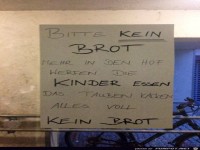 BITTE KEIN
BROT
MEHR IN DEN HOF
WERFEN DIE
KINDER ESSEN
DAS TAUBEN KACKEN
ALLES VOLL
KEIN BROT